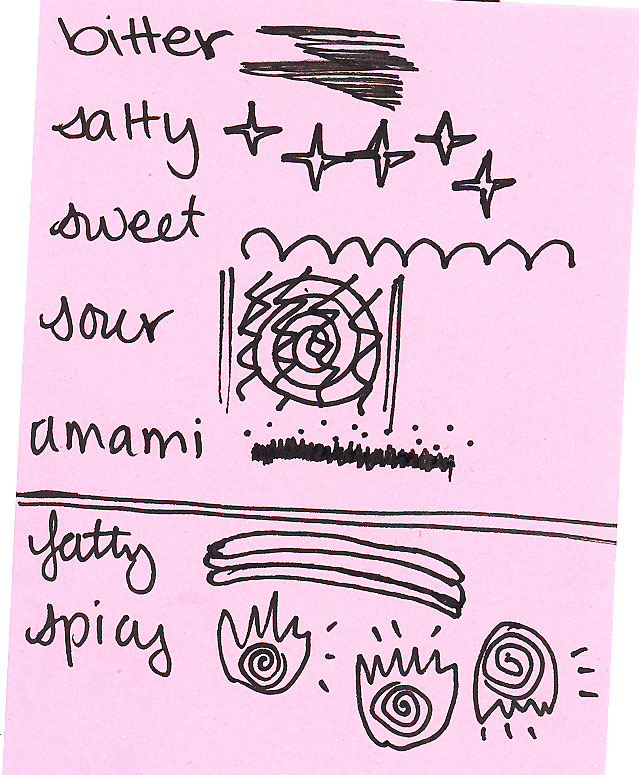 bitter
salty
sweet
sour
amami
fatty
spicy